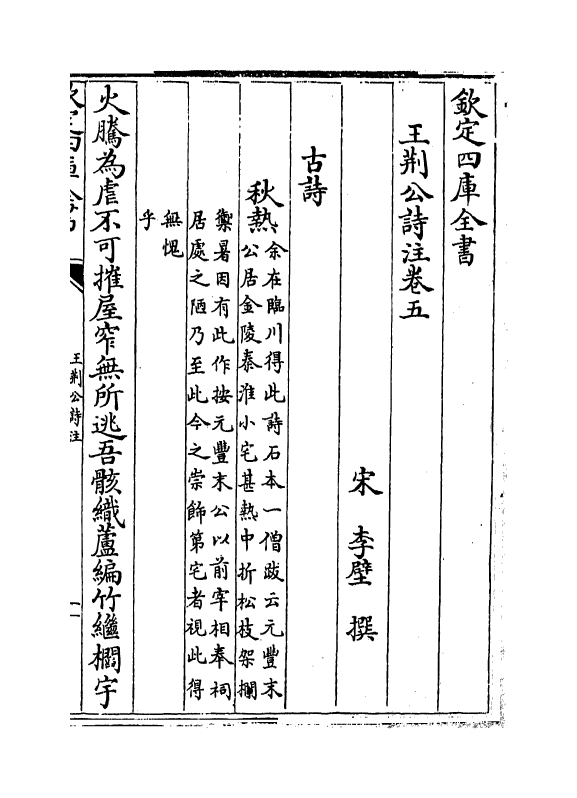 欽定四庫全書
王荆公詩注卷五
宋 李壁 撰
古詩
秋熱余在臨川得此詩石本一僧跋云元豐末
公居金陵秦淮小宅甚熱中折松枝架欄
禦暑因有此作按元豐末公以前宰相奉祠
居處之陋乃至此今之崇飾第宅者視此得
無愧
乎
火騰為虐不可摧屋窄無所逃吾骸織蘆編竹繼欄宇
欽定四庫全書
王荆公詩注
一